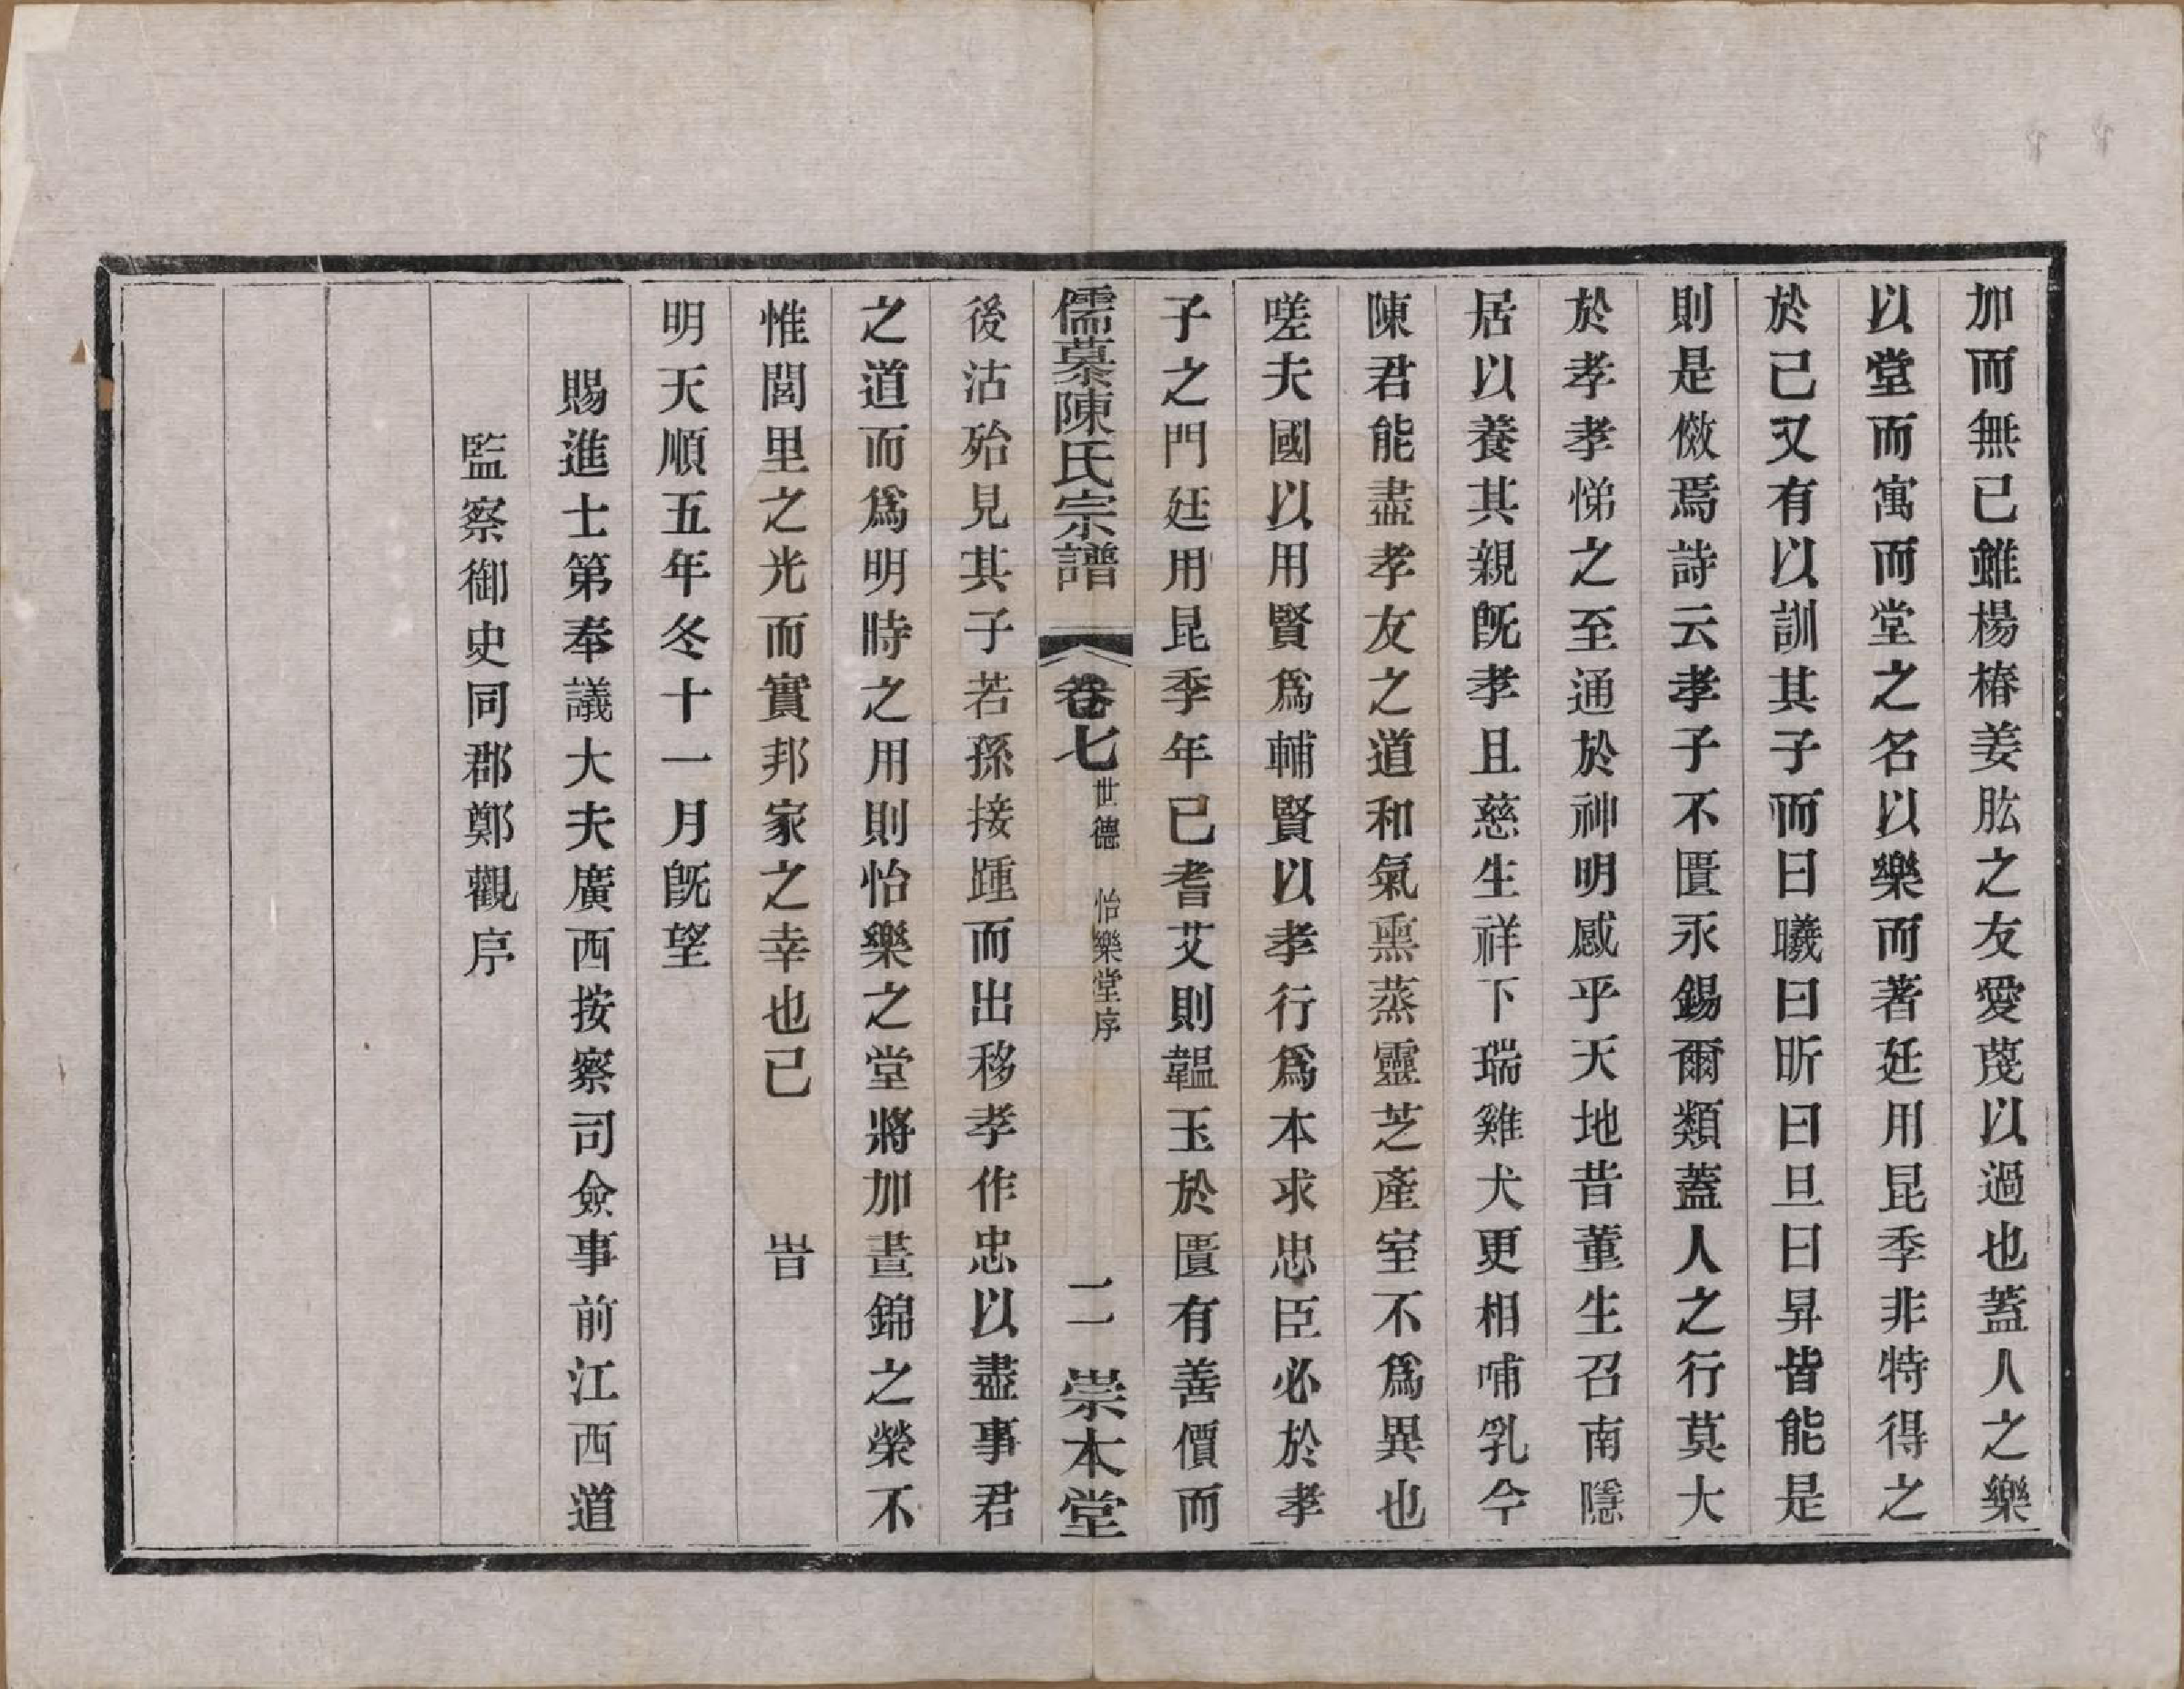 加而無已雖楊椿姜肱之友愛蔑以過也蓋人之樂
以堂而寓而堂之名以樂而著廷用昆季非特得之
於己又有以訓其子而曰曦曰昕曰旦曰昇皆能是
則是儆焉詩云孝子不匱永錫爾類蓋人之行莫大
於孝孝悌之至通於神明感乎天地昔董生召南隱
居以養其親旣孝且慈生祥下瑞雞犬更相哺乳今
陳君能盡孝友之道和氣熏蒸靈芝產室不爲異也
嗟夫國以用賢爲輔賢以孝行爲本求忠臣必於孝
子之門廷用昆季年已耆艾則韞玉於匱有善價而
儒慕陳氏宗譜 卷七 世德 怡樂堂序 二 崇本堂
後沽殆見其子若孫接踵而出移孝作忠以盡事君
之道而爲明時之用則怡樂之堂將加晝錦之榮不
惟閭里之光而實邦家之幸也已 旹
明天順五年冬十一月旣望
賜進士第奉議大夫廣西按察司僉事前江西道
監察御史同郡鄭觀序